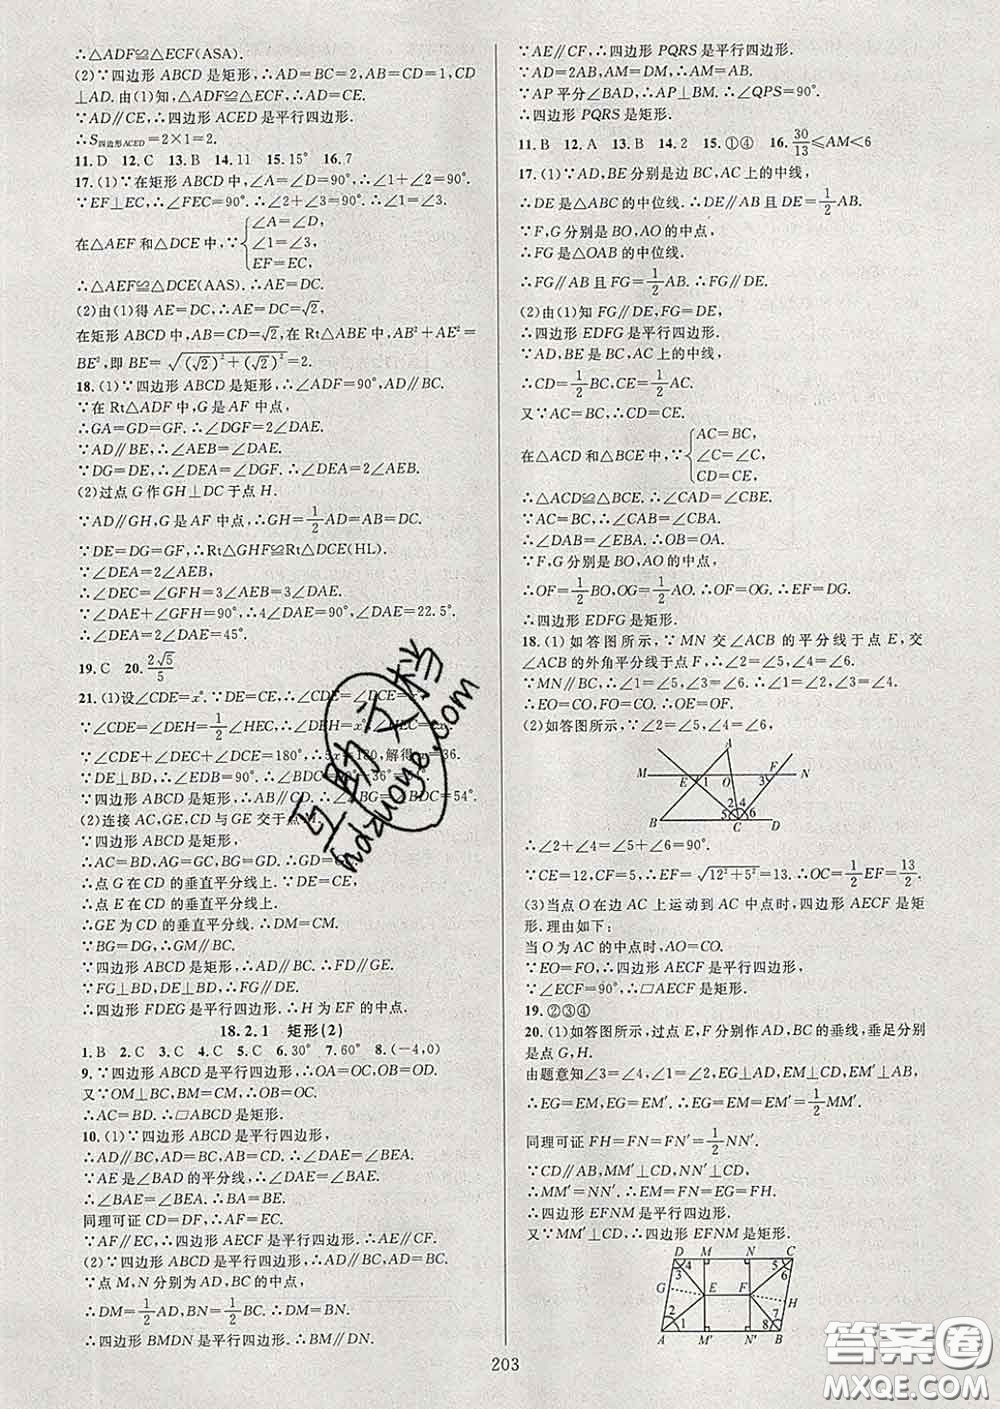 ∴△ADF≌△ECF(ASA).
(2)∵四边形 ABCD 是矩形,∴AD=BC=2,AB=CD=1,CD
⊥AD.由(1)知,△ADF≌△ECF,∴AD=CE.
∵AD∥CE,∴四边形 ACED 是平行四边形.
∴S四边形ACED=2×1=2.
11.D 12.C 13.B 14.11 15.15° 16.7
17.(1)∵在矩形 ABCD 中,∠A=∠D=90°,∴∠1+∠2=90°.
∵EF⊥EC,∴∠FEC=90°.∴∠2+∠3=90°.∴∠1=∠3.
在△AEF 和△DCE 中,∵{∠A=∠D,
∠1=∠3,
EF=EC,
∴△AEF≌△DCE(AAS).∴AE=DC.
(2)由(1)得 AE=DC,∴AE=DC=√2,
在矩形 ABCD 中,AB=CD=√2,在 Rt△ABE 中,AB²+AE²=
BE²,即 BE=√((√2)²+(√2)²)=2.
18.(1)∵四边形 ABCD 是矩形,∴∠ADF=90°,AD∥BC.
∵在 Rt△ADF 中,G 是 AF 中点,
∴GA=GD=GF.∴∠DGF=2∠DAE.
∵AD∥BE,∴∠AEB=∠DAE.
∵DG=DE,∴∠DEA=∠DGF.∴∠DEA=2∠AEB.
(2)过点 G 作 GH⊥DC 于点 H.
∵AD∥GH,G 是 AF 中点,∴GH=1/2AD=AB=DC.
∵DE=DG=GF,∴Rt△GHF≌Rt△DCE(HL).
∵∠DEA=2∠AEB,
∴∠DEC=∠GFH=3∠AEB=3∠DAE.
∵∠DAE+∠GFH=90°,∴4∠DAE=90°,∠DAE=22.5°.
∴∠DEA=2∠DAE=45°.
19.C 20.2√5/5
21.(1)设∠CDE=x°.∵DE=CE,∴∠CDE=∠DCE=x°.
∵∠CDE=∠DEH=1/2∠HEC,∴∠DEH=x°,∠HEC=2x°.
∵∠CDE+∠DEC+∠DCE=180°,∴5x=180,解得x=36.
∵DE⊥BD,∴∠EDB=90°.
∵四边形 ABCD 是矩形,
(2)连接 AC,GE,CD 与 GE 交于点 M.
∵四边形 ABCD 是矩形,
∴AC=BD,AG=GC,BG=GD.∴GD=GC.
∴点 G 在 CD 的垂直平分线上.∵DE=CE,
∴点 E 在 CD 的垂直平分线上.
∴GE 为 CD 的垂直平分线.∴DM=CM.
∵BG=DG,∴GM∥BC.
∵四边形 ABCD 是矩形,∴AD∥BC.∴FD∥GE.
∵FG⊥BD,DE⊥BD,∴FG∥DE.
∴四边形 FDEG 是平行四边形.∴H 为 EF 的中点.
18.2.1 矩形(2)
1.B 2.C 3.C 4.C 5.C 6.30° 7.60° 8.(-4,0)
9.∵四边形 ABCD 是平行四边形,∴OA=OC,OB=OD.
又∵OM⊥BC,BM=CM,∴OB=OC.
∴AC=BD.∴□ABCD 是矩形.
10.(1)∵四边形 ABCD 是平行四边形,
∴AD∥BC,AD=BC,AB=CD.∴∠DAE=∠BEA.
∵AE 是∠BAD 的平分线,∴∠BAE=∠DAE.
∴∠BAE=∠BEA.∴BA=BE.
同理可证 CD=DF,∴AF=EC.
∵AF∥EC,∴四边形 AECF 是平行四边形.∴AE∥CF.
(2)∵四边形 ABCD 是平行四边形,∴AD∥BC,AD=BC.
∵点 M,N 分别为 AD,BC 的中点,
∴DM=1/2AD,BN=1/2BC.∴DM=BN.
∴四边形 BMDN 是平行四边形.∴BM∥DN.
∵AE∥CF,∴四边形 PQRS 是平行四边形.
∵AD=2AB,AM=DM,∴AM=AB.
∵AP 平分∠BAD,∴AP⊥BM.∴∠QPS=90°.
∴四边形 PQRS 是矩形.
11.B 12.A 13.B 14.2 15.①④ 16.30/13≤AM<6
17.(1)∵AD,BE 分别是边 BC,AC 上的中线,
∴DE 是△ABC 的中位线.∴DE∥AB 且 DE=1/2AB.
∵F,G 分别是 BO,AO 的中点,
∴FG 是△OAB 的中位线.
∴FG∥AB 且 FG=1/2AB.∴FG∥DE.
(2)由(1)知 FG∥DE,FG=DE,
∴四边形 EDFG 是平行四边形.
∵AD,BE 是 BC,AC 上的中线,
∴CD=1/2BC,CE=1/2AC.
又∵AC=BC,∴CD=CE.
在△ACD 和△BCE 中,∵{AC=BC,
∠C=∠C,
CD=CE,
∴△ACD≌△BCE.∴∠CAD=∠CBE.
∵AC=BC,∴∠CAB=∠CBA.
∴∠DAB=∠EBA.∴OB=OA.
∵F,G 分别是 BO,AO 的中点,
∴OF=1/2BO,OG=1/2AO.∴OF=OG.∴EF=DG.
∴四边形 EDFG 是矩形.
18.(1)如答图所示,∵MN 交∠ACB 的平分线于点 E,交
∠ACB 的外角平分线于点 F,∴∠2=∠5,∠4=∠6.
∵MN∥BC,∴∠1=∠5,∠3=∠6.∴∠1=∠2,∠3=∠4.
∴EO=CO,FO=CO.∴OE=OF.
(2)如答图所示,∵∠2=∠5,∠4=∠6,
A
M E 1 O 3 F N
2 4
5 6
B C D
∴∠2+∠4=∠5+∠6=90°.
∵CE=12,CF=5,∴EF=√(12²+5²)=13.∴OC=1/2EF=13/2.
(3)当点 O 在边 AC 上运动到 AC 中点时,四边形 AECF 是矩
形.理由如下:
当 O 为 AC 的中点时,AO=CO.
∵EO=FO,∴四边形 AECF 是平行四边形.
∵∠ECF=90°,∴□AECF 是矩形.
19.②③④
20.(1)如答图所示,过点 E,F 分别作 AD,BC 的垂线,垂足分别
是点 G,H.
由题意知∠3=∠4,∠1=∠2,EG⊥AD,EM⊥CD,EM′⊥AB,
∴EG=EM,EG=EM′.∴EG=EM=EM′=1/2MM′.
同理可证 FH=FN=FN′=1/2NN′.
∵CD∥AB,MM′⊥CD,NN′⊥CD,
∴MM′=NN′.∴EM=FN=EG=FH.
∴四边形 EFNM 是平行四边形.
又∵MM′⊥CD,∴四边形 EFNM 是矩形.
D M N C
4 5
3 6
G E F H
2 7
1 8
A M′ N′ B
203
互助文档
hdzuoye.com
答案圈
MXQE.COM